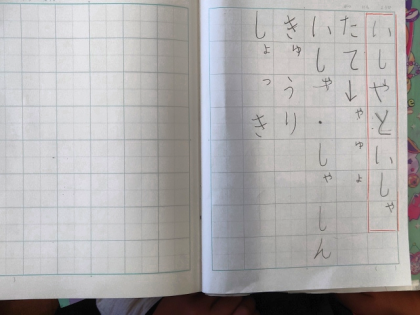 いしやといしゃ
たて↓ゃゅょ
いしゃ・しゃしん
きゅうり
しょっき